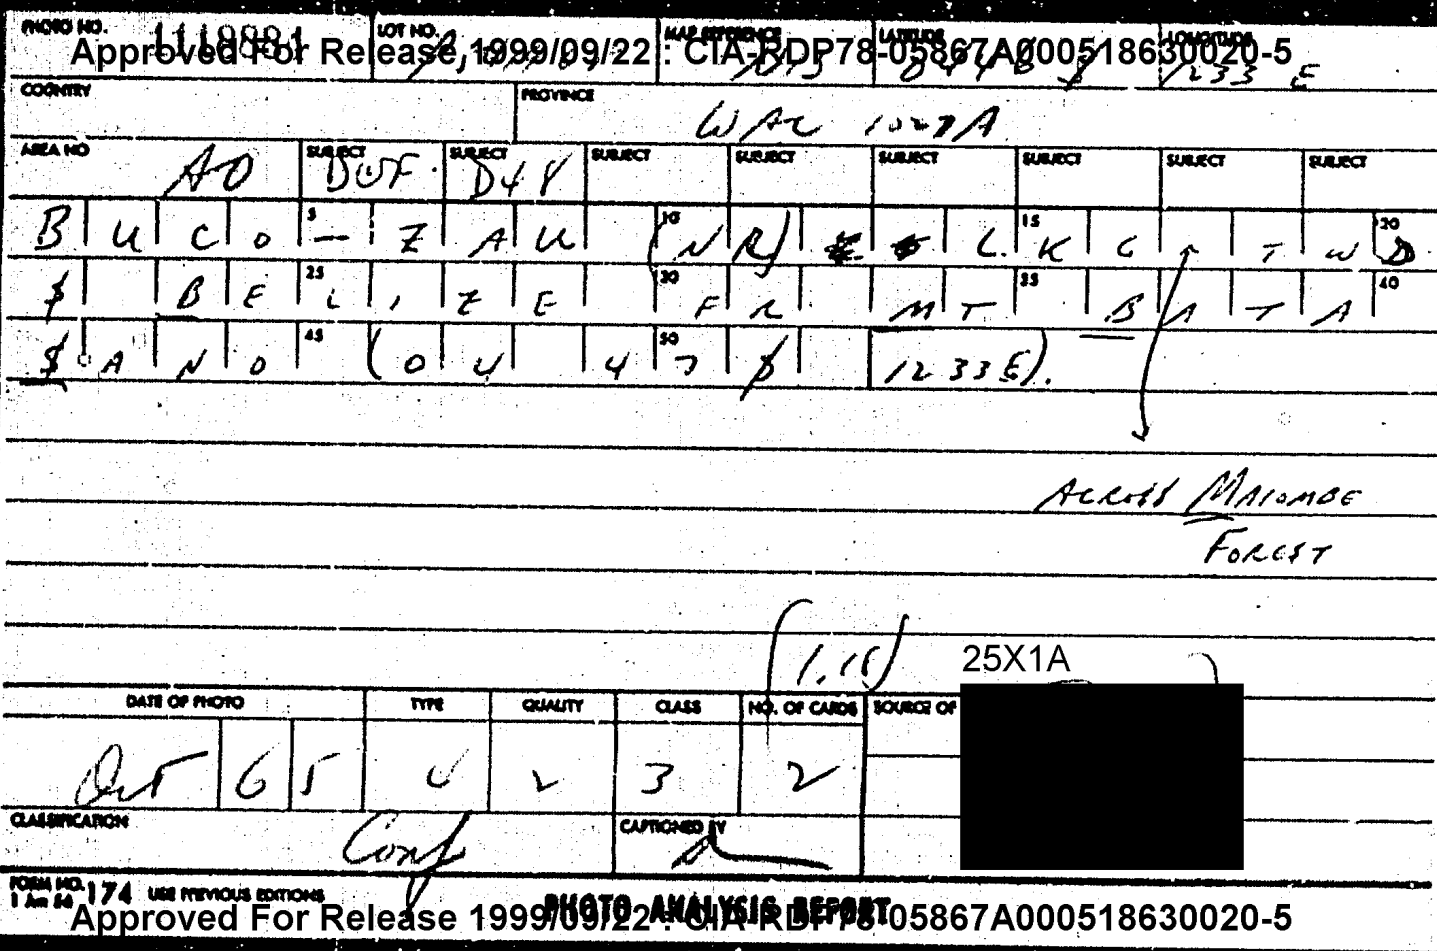 PHOTO NO. 1119881 LOT NO. MAP REFERENCE LATITUDE LONGITUDE
Approved For Release 1999/09/22 : CIA-RDP78-05867A000518630020-5
1233 E
COUNTRY PROVINCE
WAC 1027A
AREA NO SUBJECT SUBJECT SUBJECT SUBJECT SUBJECT SUBJECT SUBJECT SUBJECT
AO D48
5 10 15 20
BUCO-ZAU (NR) LKG TWD
25 30 35 40
$ BELIZE FR MT BATA
45 50
$ANO (04 47 $ 1233E).
ACROSS MAIOMBE
FOREST
(1.15) 25X1A
DATE OF PHOTO TYPE QUALITY CLASS NO. OF CARDS SOURCE OF
Oct 65 4 2 3 2
CLASSIFICATION CAPTIONED BY
Conf
FORM NO. 174 USE PREVIOUS EDITIONS PHOTO ANALYSIS REPORT
1 Jun 56
Approved For Release 1999/09/22 : CIA-RDP78-05867A000518630020-5